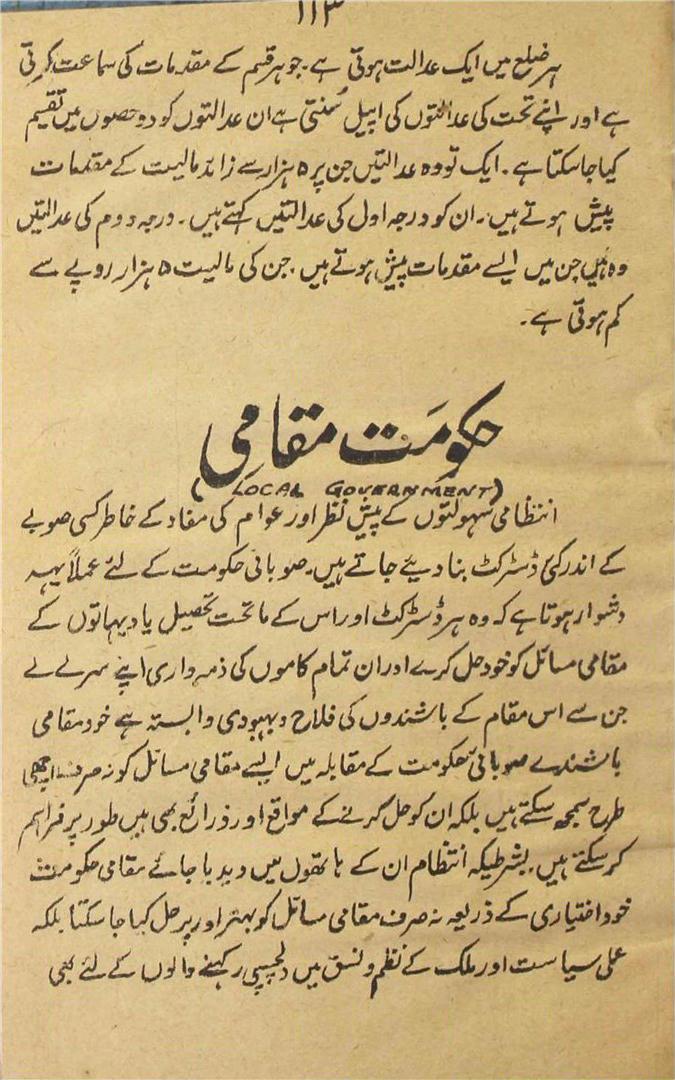 ۱۱۳
ہر ضلع میں ایک عدالت ہوتی ہے۔ جو ہر قسم کے مقدمات کی سماعت کرتی
ہے اور اپنے تحت کی عدالتوں کی اپیل سُنتی ہے ان عدالتوں کو دو حصوں میں تقسیم
کیا جا سکتا ہے۔ ایک تو وہ عدالتیں جن پر ۵ ہزار سے زائد مالیت کے مقدمات
پیش ہوتے ہیں۔ ان کو درجہ اول کی عدالتیں کہتے ہیں۔ درجہ دوم کی عدالتیں
وہ ہیں جن میں ایسے مقدمات پیش ہوتے ہیں۔ جن کی مالیت ۵ ہزار روپے سے
کم ہوتی ہے۔
حکومت مقامی
(LOCAL GOVERNMENT)
انتظامی سہولتوں کے پیش نظر اور عوام کی مفاد کے خاطر کسی صوبے
کے اندر کئی ڈسٹرکٹ بنا دیئے جاتے ہیں۔ صوبائی حکومت کے لئے عملاً یہہ
دشوار ہوتا ہے کہ وہ ہر ڈسٹرکٹ اور اس کے ماتحت تحصیل یا دیہاتوں کے
مقامی مسائل کو خود حل کرے اور ان تمام کاموں کی ذمہ داری اپنے سر لے لے
جن سے اس مقام کے باشندوں کی فلاح و بہبودی وابستہ ہے خود مقامی
باشندے صوبائی حکومت کے مقابلہ میں ایسے مقامی مسائل کو نہ صرف اچھی
طرح سمجھ سکتے ہیں بلکہ ان کو حل کرنے کے مواقع اور ذرائع بھی طور پر فراہم
کر سکتے ہیں بشرطیکہ انتظام ان کے ہاتھوں میں دیدیا جائے مقامی حکومت
خود اختیاری کے ذریعہ نہ صرف مقامی مسائل کو بہتر اور پر حل کیا جا سکتا بلکہ
علی سیاست اور ملک کے نظم و نسق میں دلچسپی رکھنے والوں کے لئے بھی